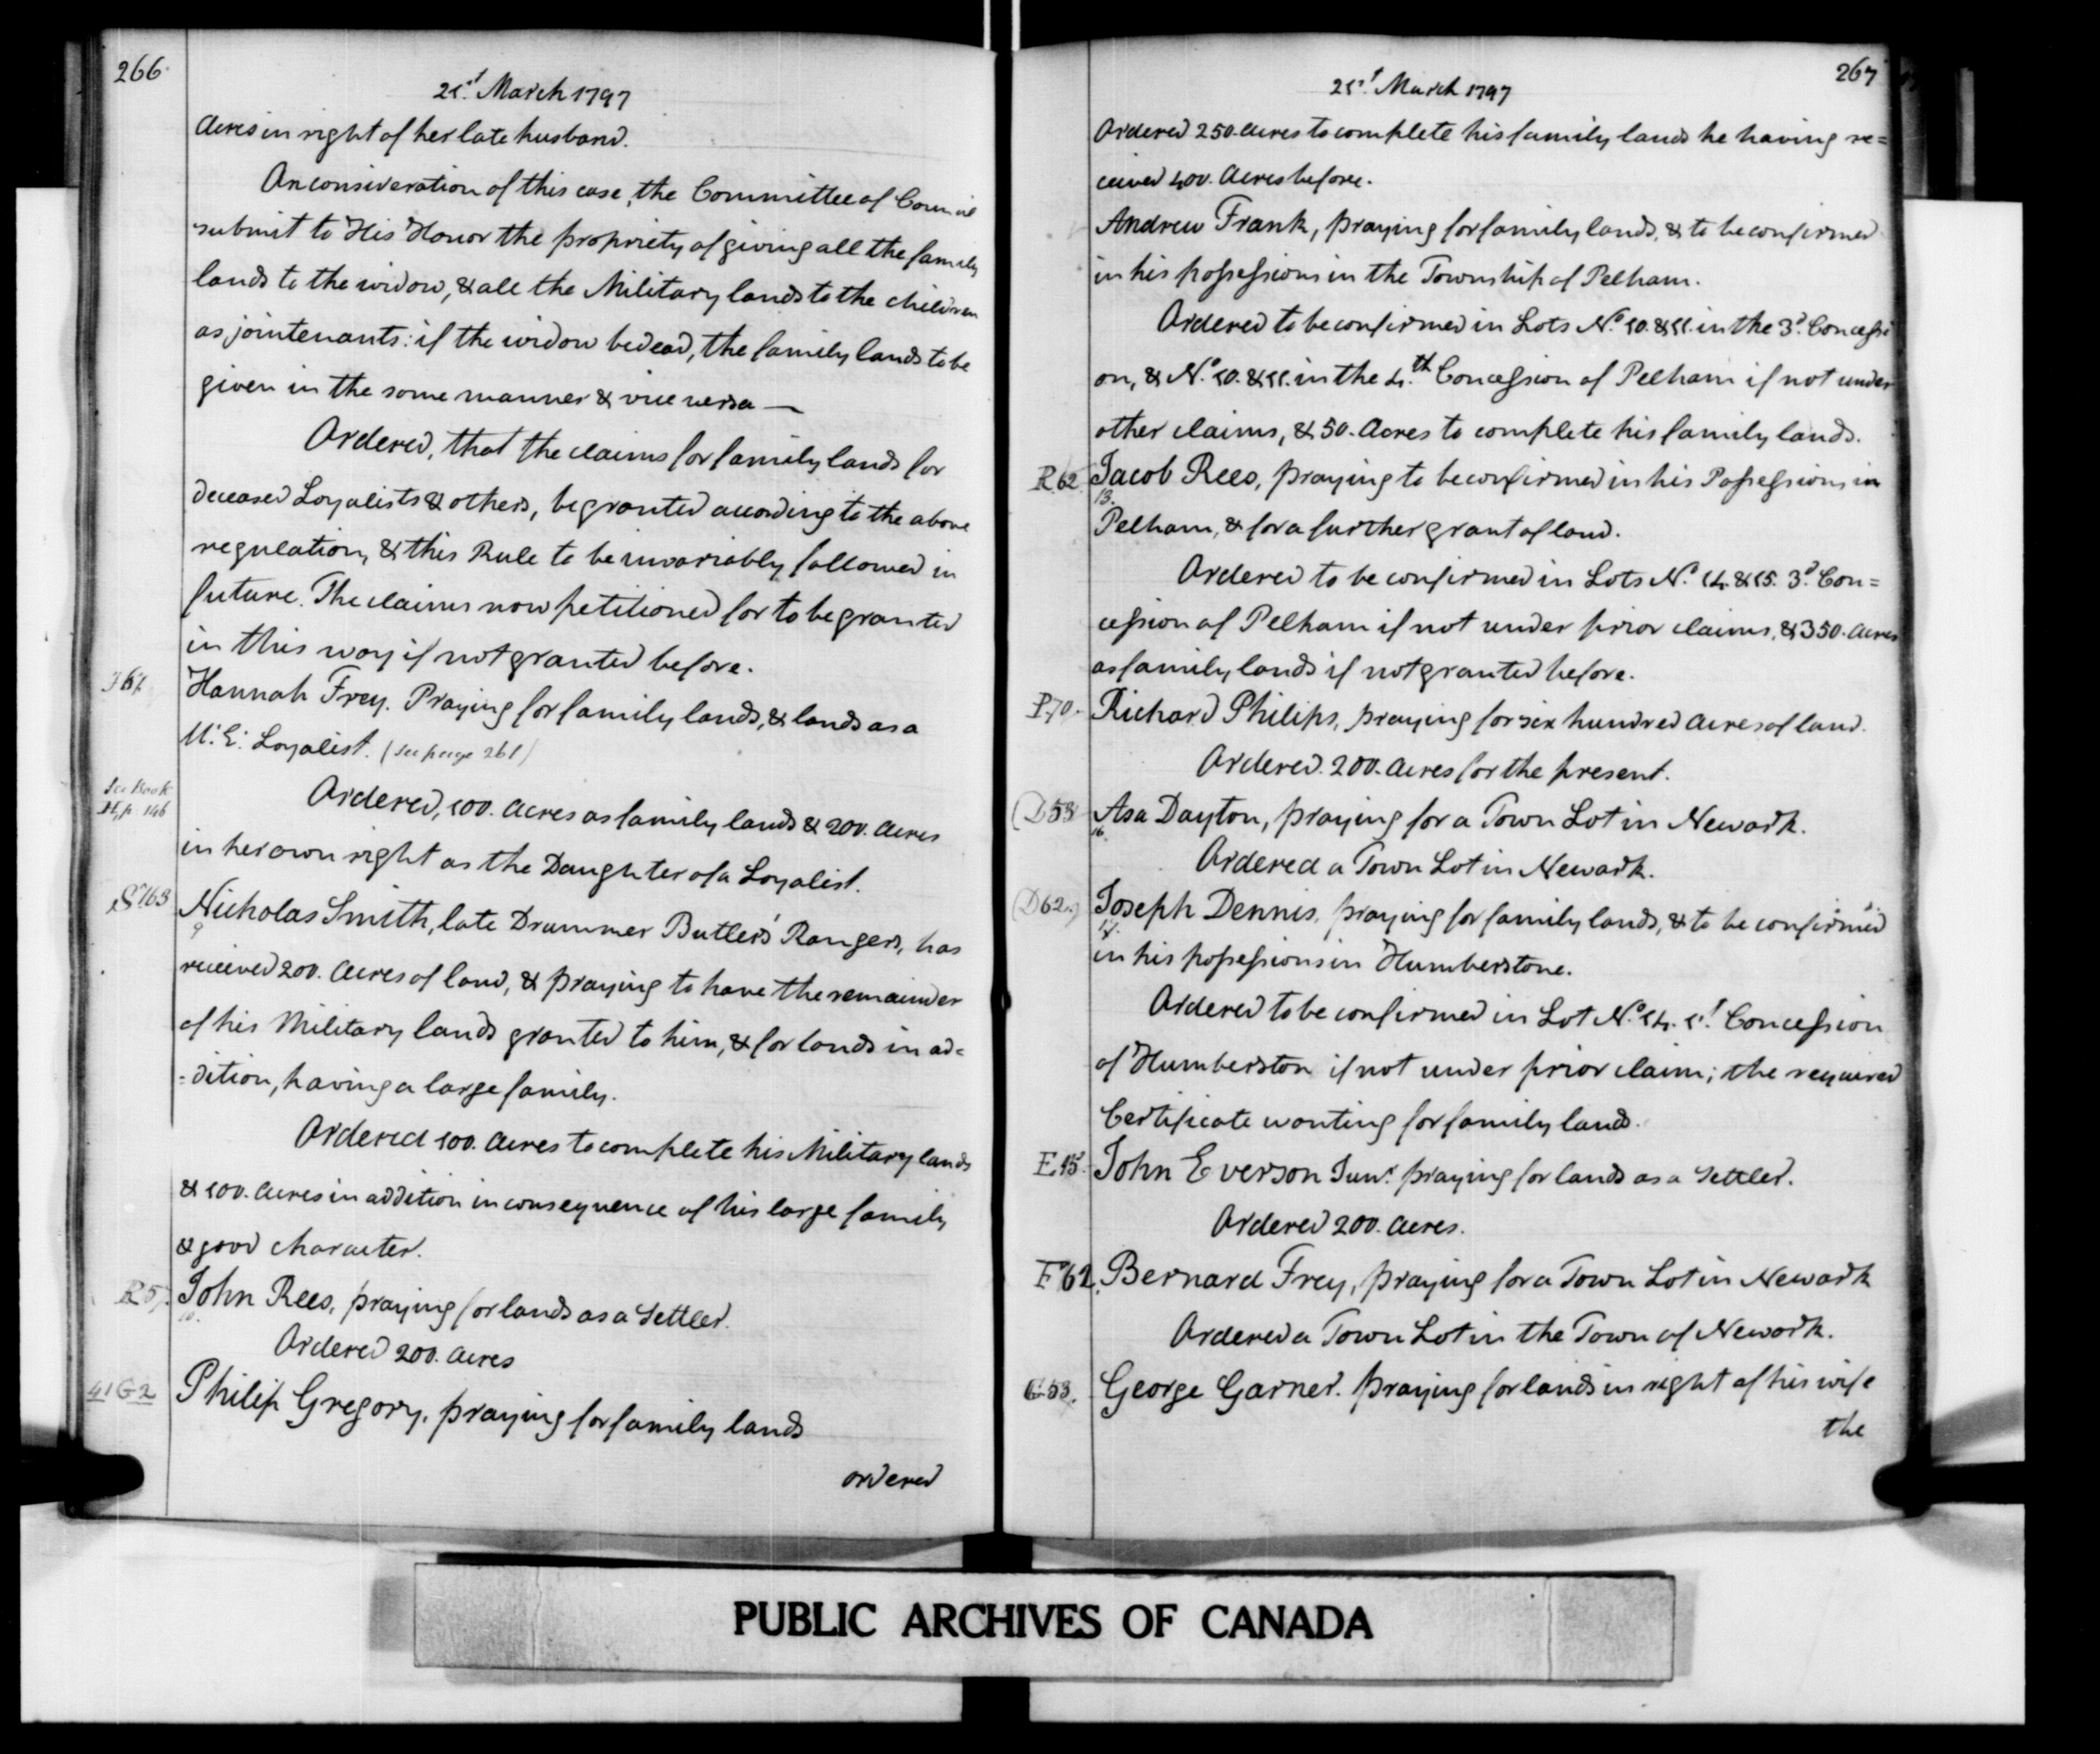 266.
21st. March 1797
Acres in right of her late husband.
On consideration of this case, the Committee of Council
submit to His Honor the propriety of giving all the family
lands to the widow, & all the Military lands to the children
as jointenants: if the widow be dead, the family lands to be
given in the same manner & vice versa —
Ordered, that the claims for family lands for
deceased Loyalists & others, be granted according to the above
regulation, & this Rule to be invariably followed in
future. The claims now petitioned for to be granted
in this way if not granted before.
Hannah Frey. Praying for family lands, & lands as a
U. E. Loyalist. (See page 261)
See Book
H, p. 146
Ordered, 100. Acres as family lands & 200. Acres
in her own right as the Daughter of a Loyalist.
S 163
Nicholas Smith, late Drummer Butlers' Rangers, has
9
received 200. Acres of land, & praying to have the remainder
of his Military lands granted to him, & for lands in ad=
=dition, having a large family.
Ordered 100. Acres to complete his Military lands
& 100. Acres in addition in consequence of his large family
& good character.
John Rees, praying for lands as a Settler.
10.
Ordered 200. Acres
41 G 2
Philip Gregory, praying for family lands
ordered
267
21st. March 1797
Ordered 250. Acres to complete his family lands he having re=
ceived 400. Acres before.
Andrew Frank, praying for family lands, & to be confirmed
in his possessions in the Township of Pelham.
Ordered to be confirmed in Lots No. 10. & 11. in the 3d. Concessi
on, & No. 10. & 11. in the 4.th Concession of Pelham if not under
other claims, & 50. Acres to complete his family lands.
R 62
Jacob Rees, praying to be confirmed in his Possessions in
13.
Pelham, & for a further grant of land.
Ordered to be confirmed in Lots No. 14. & 15. 3d. Con=
cession of Pelham if not under prior claims, & 350. Acres
as family lands if not granted before.
P 70.
Richard Philips, praying for six hundred Acres of land.
Ordered. 200. Acres for the present.
(D 58
Asa Dayton, praying for a Town Lot in Newark.
16.
Ordered a Town Lot in Newark.
(D 62.)
Joseph Dennis, praying for family lands, & to be confirmed
17.
in his possessions in Humberstone.
Ordered to be confirmed in Lot No. 14. 1st. Concession
of Humberston if not under prior claim; the required
Certificate wanting for family land.
E. 15.
John Everson Junr. praying for lands as a Settler.
Ordered 200. Acres.
F 62.
Bernard Frey, praying for a Town Lot in Newark
Ordered a Town Lot in the Town of Newark.
G 53.
George Garner. praying for lands in right of his wife
the
PUBLIC ARCHIVES OF CANADA